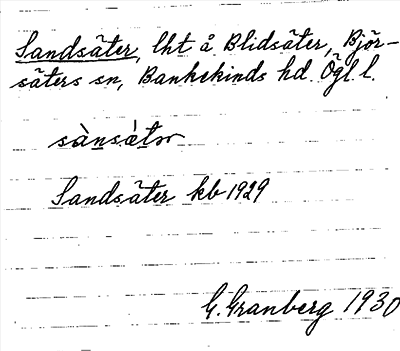 Sandsäter, lht å Blidsäter, Björ-
säters sn, Bankekinds hd. Ögl l.
sànsæ̀tər
Sandsäter kb 1929
G. Granberg 1930